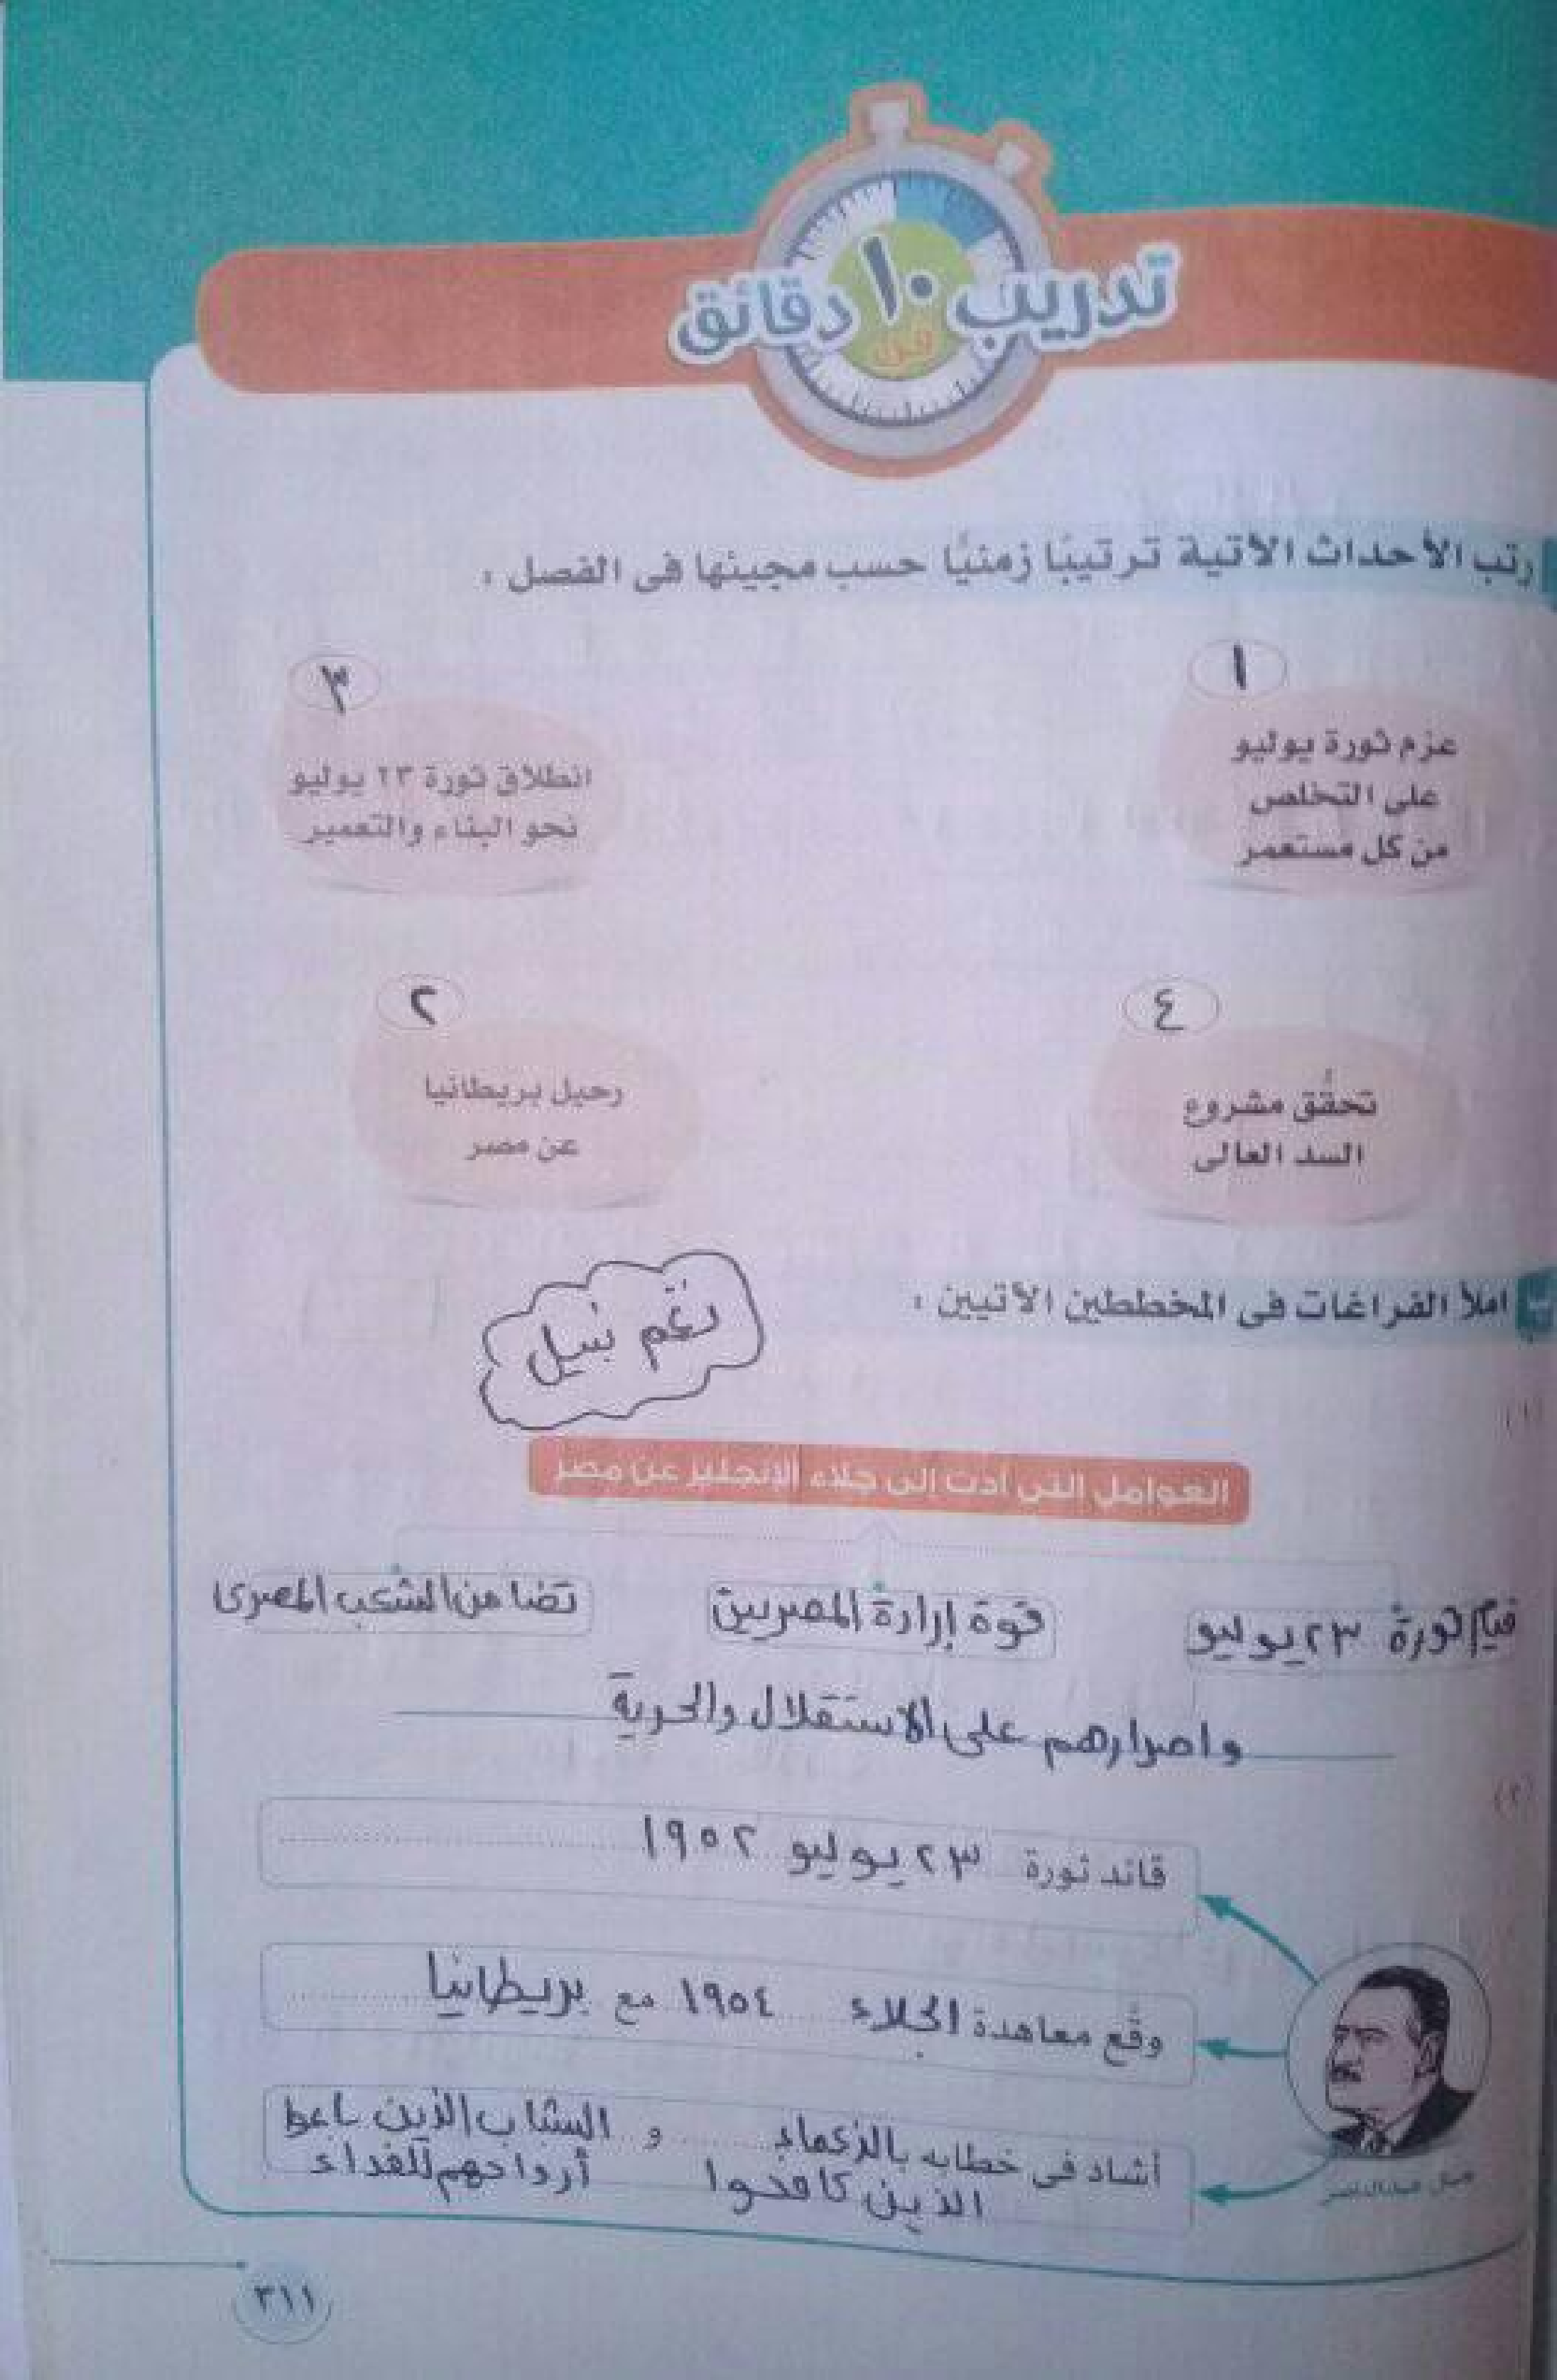 تدريب ١٠ دقائق
فى
رتب الأحداث الآتية ترتيبًا زمنيًّا حسب مجيئها فى الفصل :
١
عزم ثورة يوليو
على التخلص
من كل مستعمر
٣
انطلاق ثورة ٢٣ يوليو
نحو البناء والتعمير
٤
تحقُّق مشروع
السد العالى
٢
رحيل بريطانيا
عن مصر
ب املأ الفراغات فى المخططين الآتيين :
نغم نبيل
(١)
العوامل التى أدت إلى جلاء الإنجليز عن مصر
قيام ثورة ٢٣ يوليو
قوة إرادة المصريين
تضامن الشعب المصرى
واصرارهم على الاستقلال والحرية
(٢)
قائد ثورة ٢٣ يوليو ١٩٥٢
وقَّع معاهدة الجلاء ١٩٥٤ مع بريطانيا
أشاد فى خطابه بالزعماء و الشباب الذين باعوا
الذين كافحوا أرواحهم للفداء
جمال عبد الناصر
٣١١